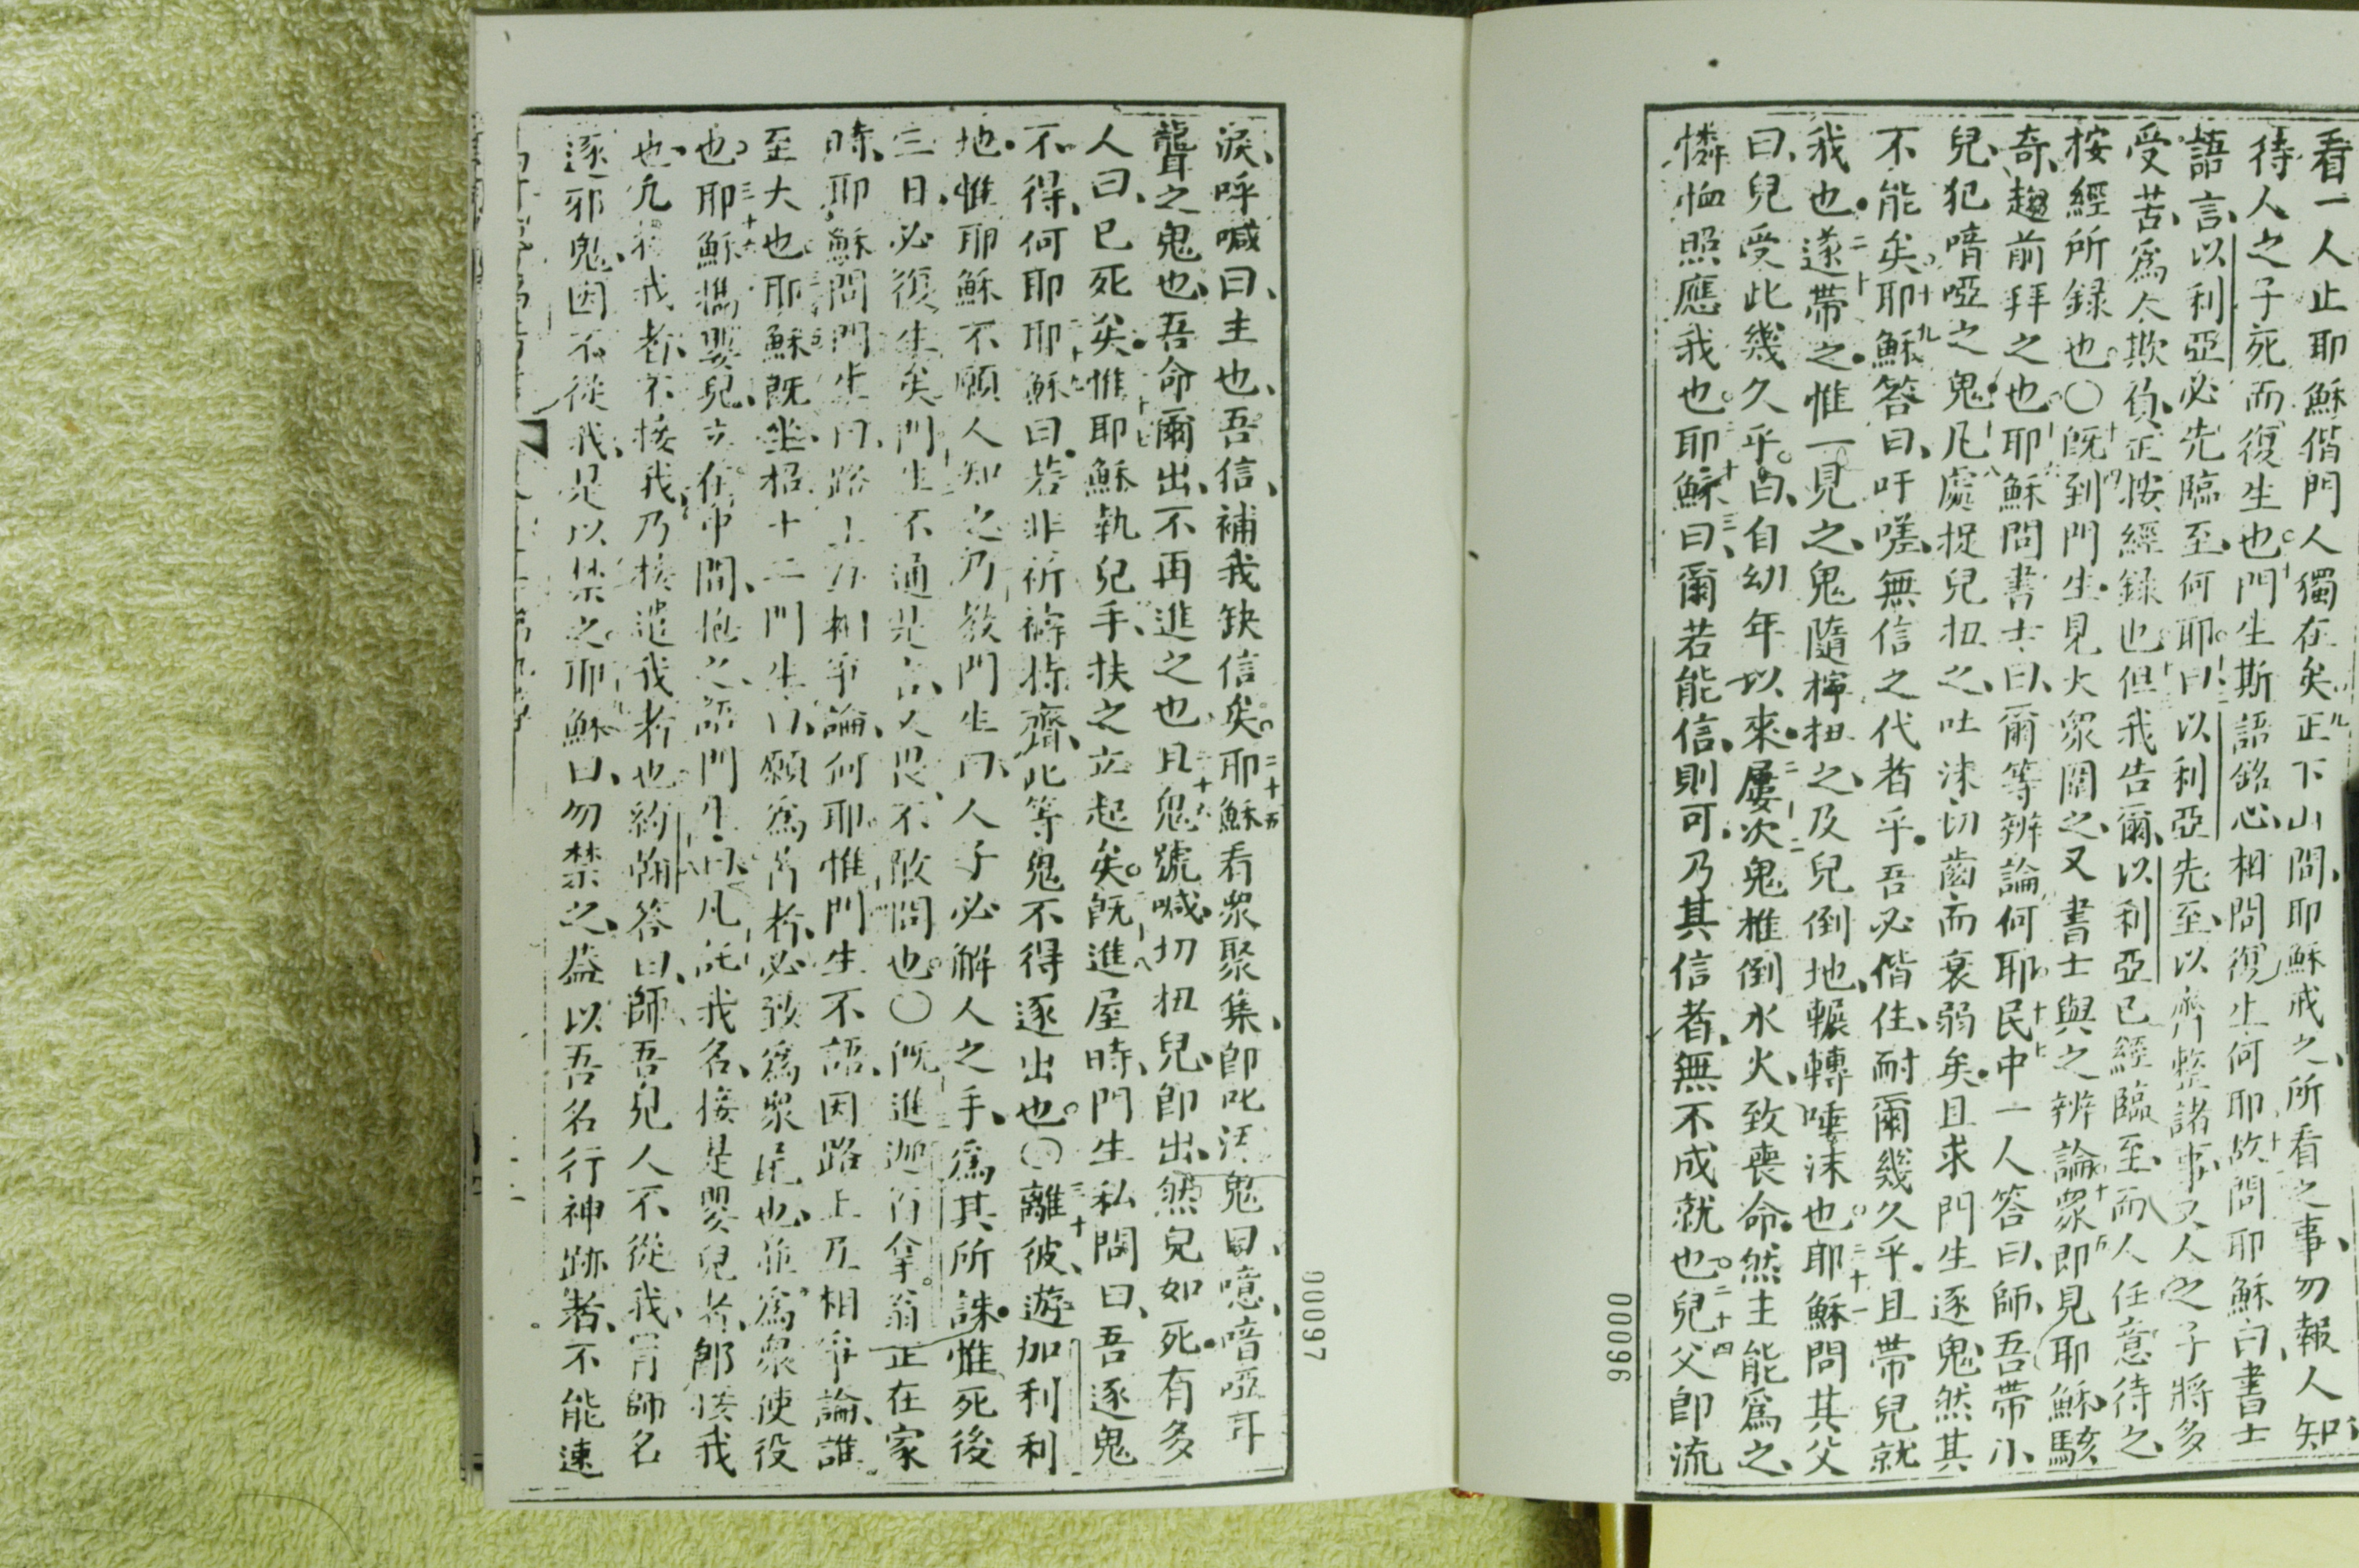 看一人止耶穌偕門人獨在矣正下山間耶穌戒之所看之事勿報人知
待人之子死而復生也門生斯語銘心相問復生何耶故問耶穌曰書士
語言以利亞必先臨至何耶曰以利亞先至以齊整諸事又人之子將多
受苦為人欺負正按經錄也但我告爾以利亞已經臨至而人任意待之
按經所錄也〇既到門生見大眾圍之又書士與之辨論眾即見耶穌駭
奇趨前拜之也耶穌問書士曰爾等辨論何耶民中一人答曰師吾帶小
兒犯喑啞之鬼凡處捉兒扭之吐沫切齒而衰弱矣且求門生逐鬼然其
不能矣十九耶穌答曰吁嗟無信之代者乎吾必偕住耐爾幾久乎且帶兒就
我也二十遂帶之惟一見之鬼隨擰扭之及兒倒地輾轉唾沫也二十一耶穌問其父
曰兒受此幾久乎曰自幼年以來二十二屢次鬼推倒水火致喪命然主能為之
憐恤照應我也二十三耶穌曰爾若能信則可乃其信者無不成就也二十四兒父即流
00096
淚呼喊曰主也吾信補我缺信矣二十五耶穌看眾聚集即叱汚鬼曰噫喑啞耳
聾之鬼也吾命爾出不再進之也且鬼號喊扭兒即出然兒如死有多
人曰已死矣惟耶穌執兒手扶之立起矣既進屋時門生私問曰吾逐鬼
不得何耶耶穌曰若非祈禱持齋此等鬼不得逐出也〇三十離彼遊加利利
地惟耶穌不願人知之乃教門生曰人子必解人之手為其所誅惟死後
三日必復生矣門生不通是言又畏不敢問也〇既進迦百拿翁正在家
時耶穌問門生曰路上乃相爭論何耶惟門生不語因路上乃相爭論誰
至大也耶穌既坐招十二門生曰願為首者必致為眾尾也並為眾使役
也三十六耶穌攜嬰兒立在中間抱之語門生曰凡託我名接是嬰兒者即接我
也凡接我者不接我乃接遣我者也約翰答曰師吾見人不從我冐師名
逐邪鬼因不從我是以禁之耶穌曰勿禁之蓋以吾名行神跡者不能速
00097